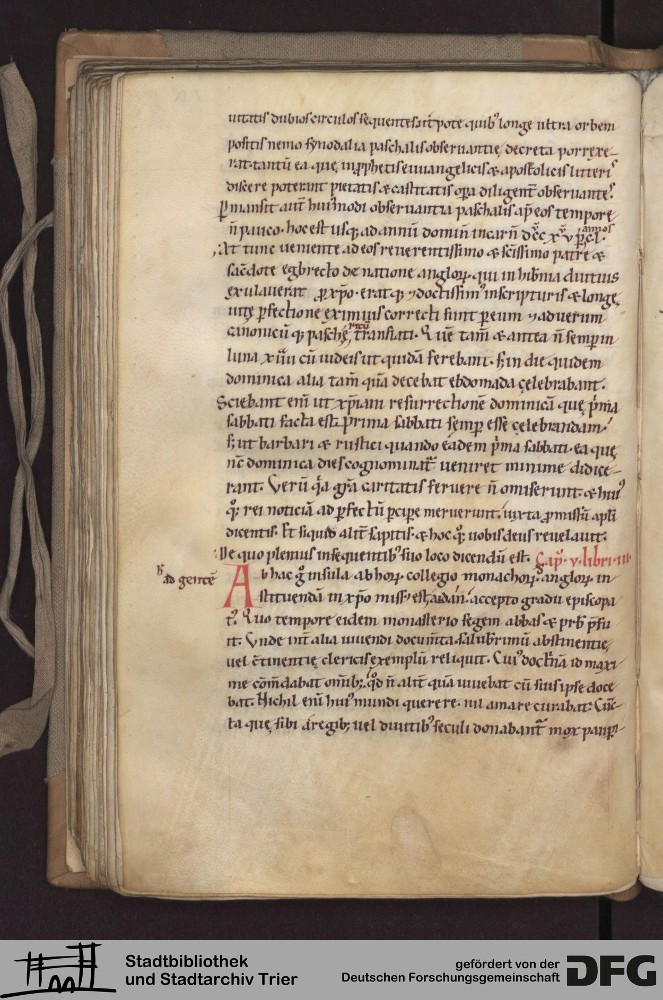 uitatis dubios circulos sequentes. ut pote quib' longe ultra orbem
positis nemo synodalia paschalis obseruantię decreta porrexe-
rat. tantū ea que in propheticis euuangelicis & apostolicis litteris
discere poterant pietatis & castitatis opa diligent obseruantes.
Pmansit aut hui'modi obseruantia paschalis ap eos tempore
n pauco. hoc est usq; ad annū domini incarn dccxv p annos cl.
At tunc ueniente ad eos reuerentissimo & scissimo patre &
sacdote egbrecto de natione anglor. qui in hibnia diutius
exulauerat pro xpo. erat q; & doctissim' in scripturis & longę
uitę pfectione eximius correcti sunt p eum & ad uerum
canonicū q; paschę diem translati. Quē tam & antea n semp in
luna xiiii cū iudeis ut quidā ferebant. s; in die quidem
dominica alia tam quā decebat ebdomada çelebrabant.
Sciebant eni ut xpiani resurrectionē dominicā quę pma
sabbati facta est. prima sabbati semp esse çelebrandam.
s; ut barbari & rustici quando eadem pma sabbati. ea quę
nc dominica dies cognominat ueniret minime didice-
rant. Verū qa gra caritatis feruere n omiserunt. & hui'
q; rei noticiā ad pfectū pcipe meruerunt. iuxta pmissū apli
dicentis. Et siquid alit sapitis. & hoc q; uobis deus reuelauit.
De quo plenius in sequentib' suo loco dicendū est. Cap. v. libri. iii.
ad gentē
Ab hac g insula. ab hor collegio monachor. anglor in-
stituendā in xpo miss' est aidan. accepto gradu episcopa
t'. Quo tempore eidem monasterio segem abbas & prb pfu
it. Vnde int alia uiuendi documta saluberrimū abstinentię
uel ctinentię clericis exemplū reliquit. Cui' doctrinā id maxi
me cōmdabat omib;. qd n alit quā uiuebat cū suis ipse doce
bat. Nichil eni hui' mundi querere. nil amare curabat. Cūc
ta quę sibi a regib; uel diuitib' seculi donabant mox paup-
Stadtbibliothek
und Stadtarchiv Trier
gefördert von der
Deutschen Forschungsgemeinschaft
DFG